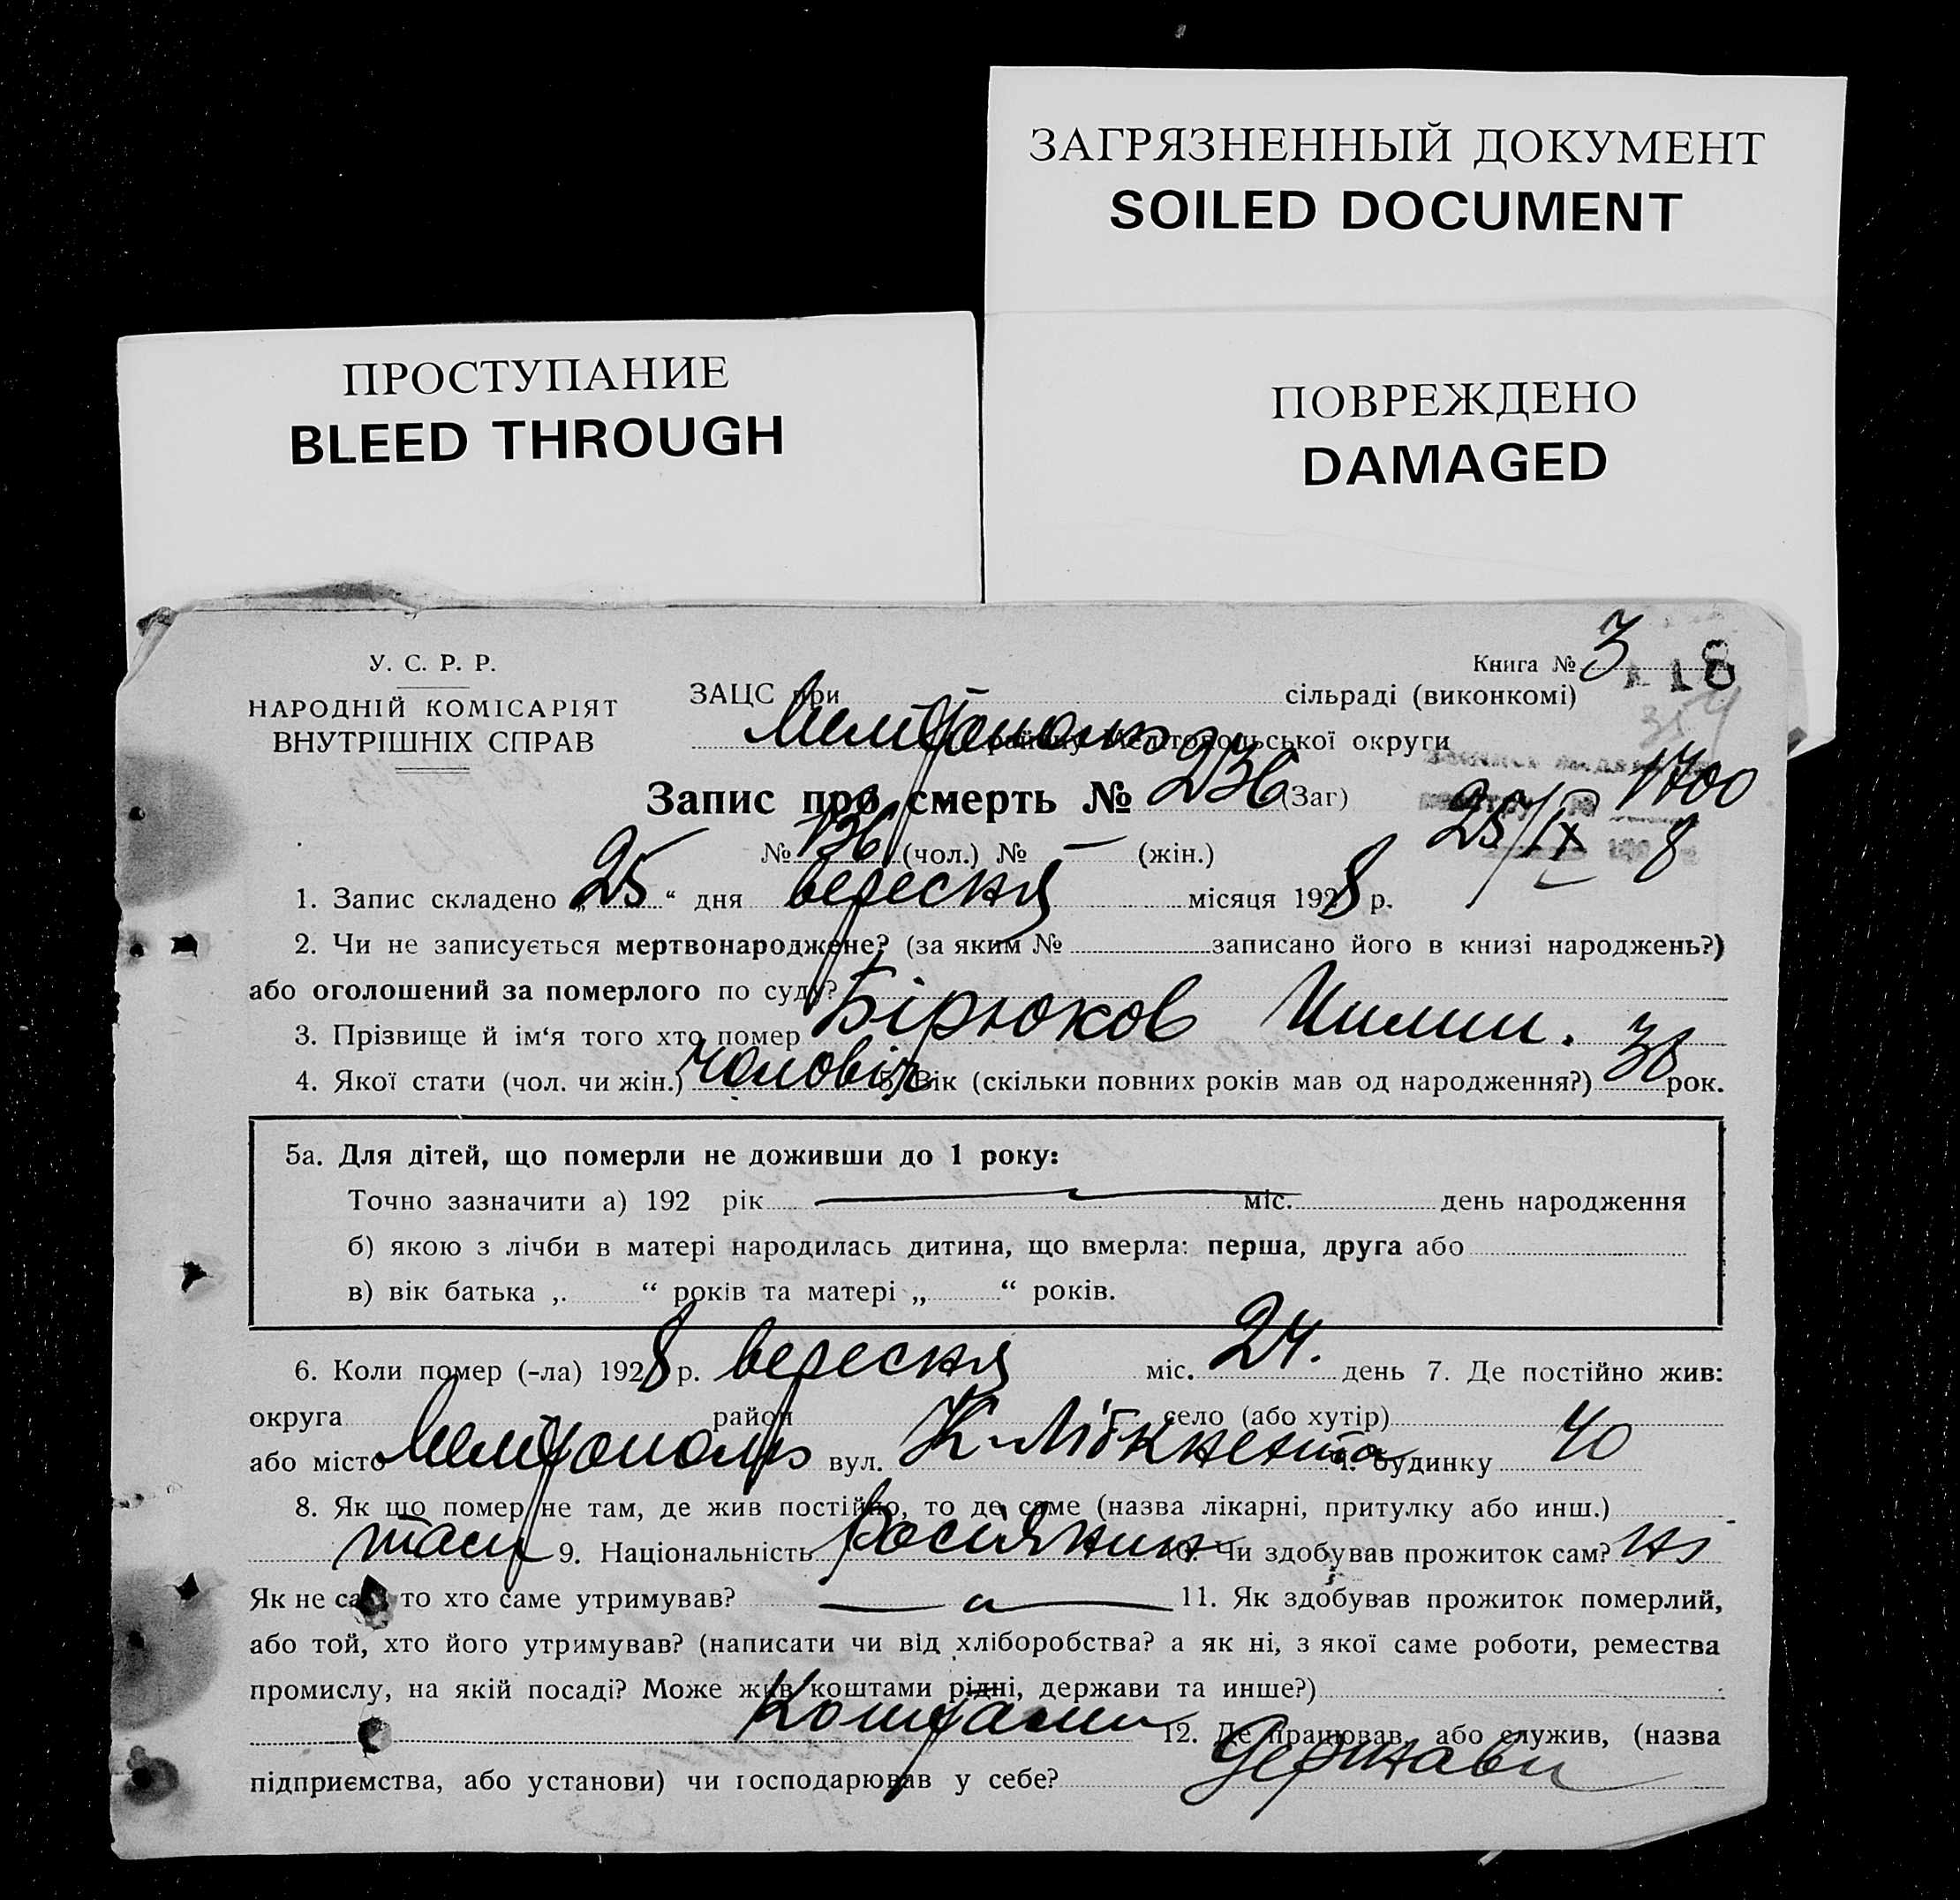 ЗАГРЯЗНЕННЫЙ ДОКУМЕНТ
SOILED DOCUMENT
ПРОСТУПАНИЕ
BLEED THROUGH
ПОВРЕЖДЕНО
DAMAGED
У. С. Р. Р.
НАРОДНІЙ КОМІСАРІЯТ
ВНУТРІШНІХ СПРАВ
Книга № 3
18
ЗАЦС при сільраді (виконкомі)
Мелітополь району Мелітопольської округи
1700
Запис про смерть № 236 (Заг)
25/IX 8
№ 136 (чол.) № — (жін.)
1. Запис складено „25“ дня вересня місяця 1928 р.
2. Чи не записується мертвонароджене? (за яким № записано його в книзі народжень?)
або оголошений за померлого по суду?
3. Прізвище й ім‘я того хто помер Бірюков
4. Якої стати (чол. чи жін.) чоловік 5. Вік (скільки повних років мав од народження?) 38 рок.
5а. Для дітей, що померли не доживши до 1 року:
Точно зазначити а) 192 рік міс. день народження
б) якою з лічби в матері народилась дитина, що вмерла: перша, друга або
в) вік батька „ “ років та матері „ “ років.
6. Коли помер (-ла) 1928 р. вересня міс. 24. день 7. Де постійно жив:
округа район село (або хутір)
або місто Мелітополь вул. К-Лібкнехта ч. будинку 40
8. Як що помер не там, де жив постійно, то де саме (назва лікарні, притулку або инш.)
там 9. Національність росіянин 10. Чи здобував прожиток сам? ні
Як не сам то хто саме утримував? 11. Як здобував прожиток померлий,
або той, хто його утримував? (написати чи від хліборобства? а як ні, з якої саме роботи, ремества
промислу, на якій посаді? Може жив коштами рідні, держави та инше?)
Коштами 12. Де працював, або служив, (назва
підприємства, або установи) чи господарював у себе? Держави